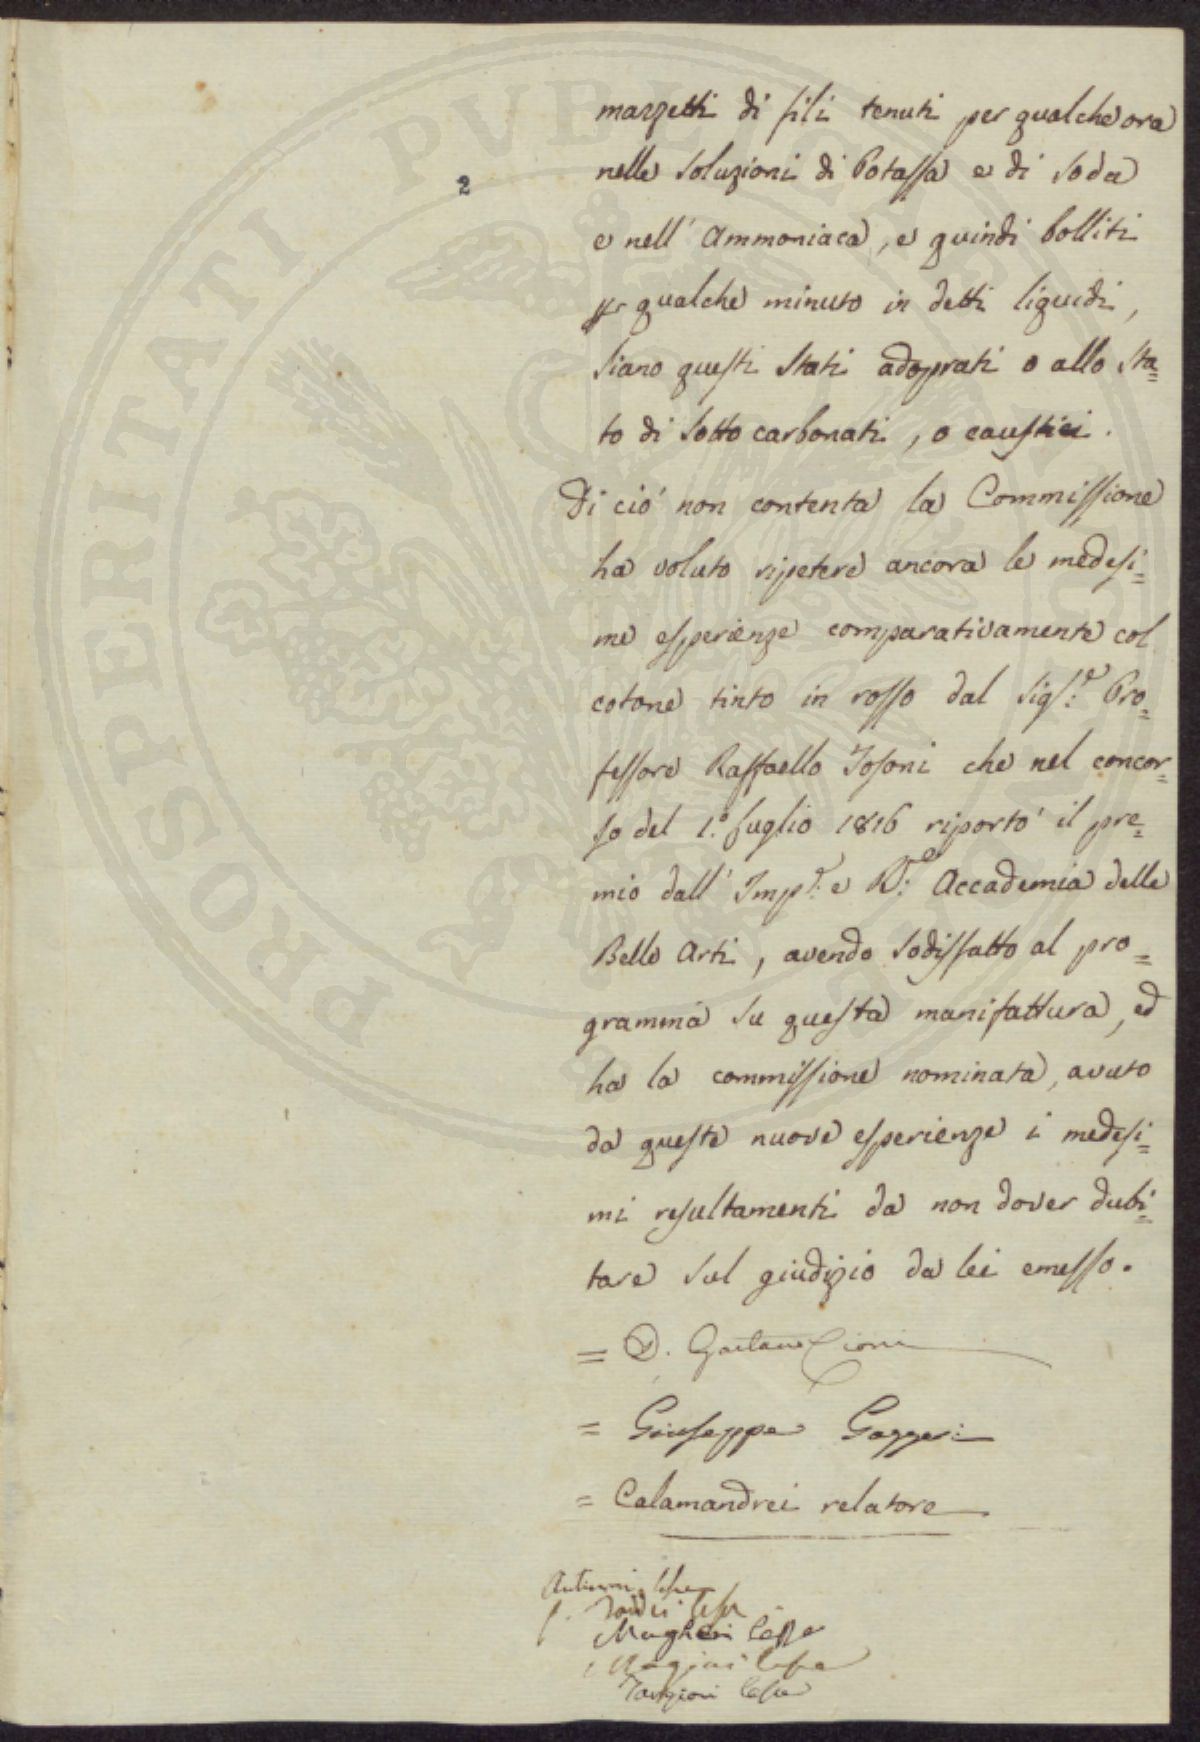 2
mazzetti di fili tenuti per qualche ora
nelle soluzioni di Potassa e di soda
e nell' Ammoniaca, e quindi bolliti
per qualche minuto in detti liquidi,
siano questi stati adoprati o allo sta=
to di sotto carbonati, o caustici.
Di ciò non contenta la Commissione
ha voluto ripetere ancora le medesi=
me esperienze comparativamente col
cotone tinto in rosso dal Sig.re Pro=
fessore Raffaello Tosoni che nel concor=
so del 1.o Luglio 1816 riportò il pre=
mio dall' Imp.e e R.e Accademia delle
Belle Arti, avendo sodisfatto al pro=
gramma su questa manifattura, ed
ha la commissione nominata, avuto
da queste nuove esperienze i medesi=
mi resultamenti da non dover dubi=
tare sul giudizio da lei emesso.
= D. Gaetano Cioni
= Giuseppe Gazzeri
= Calamandrei relatore
Taddei lesse
Magheri lesse
lesse
Targioni lesse
PROSPERITATI PVBLICAE AVGENDAE